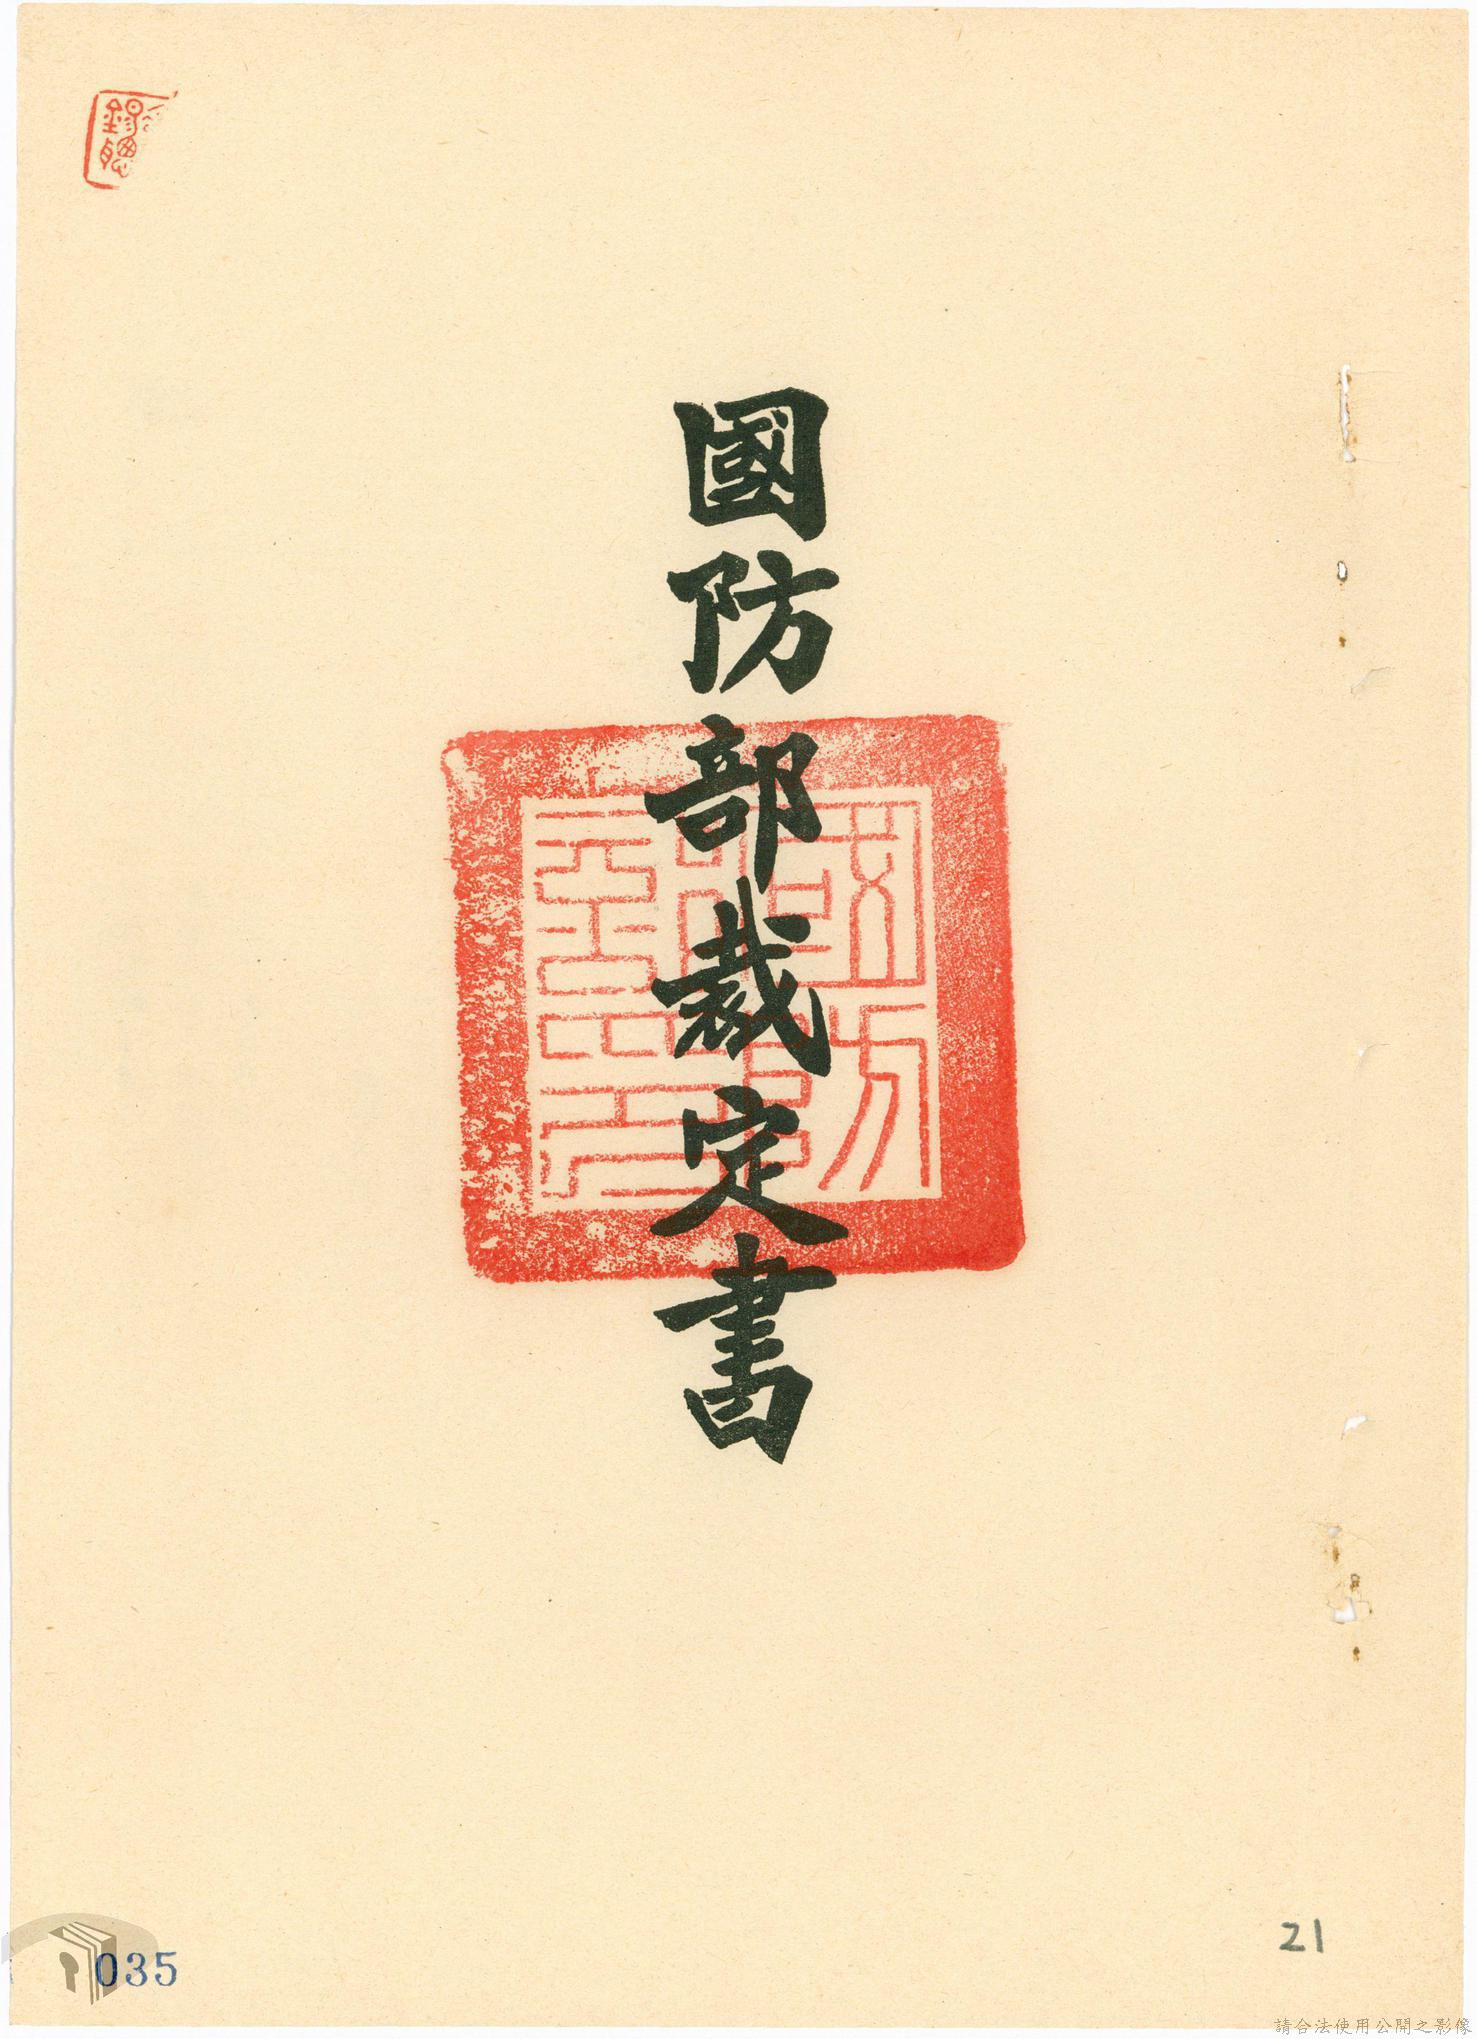 國防部裁定書
035
21
請合法使用公開之影像